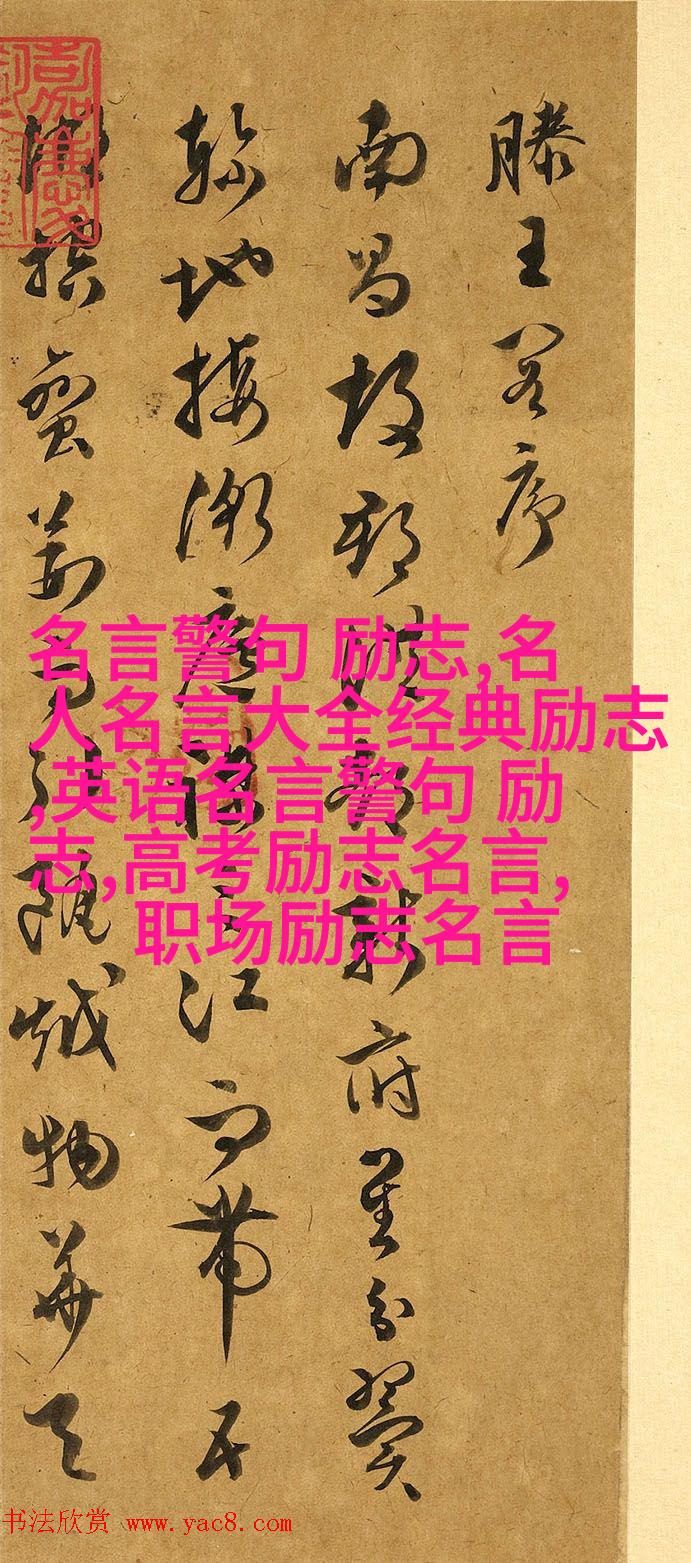 滕王閣序
南昌故郡洪都新府星分翼
軫地接衡廬襟三江而帶五
湖控蠻荊而引甌越物華天
名言警句 励志,名
人名言大全经典励志
,英语名言警句 励
志,高考励志名言,
职场励志名言
书法欣赏 www.yac8.com